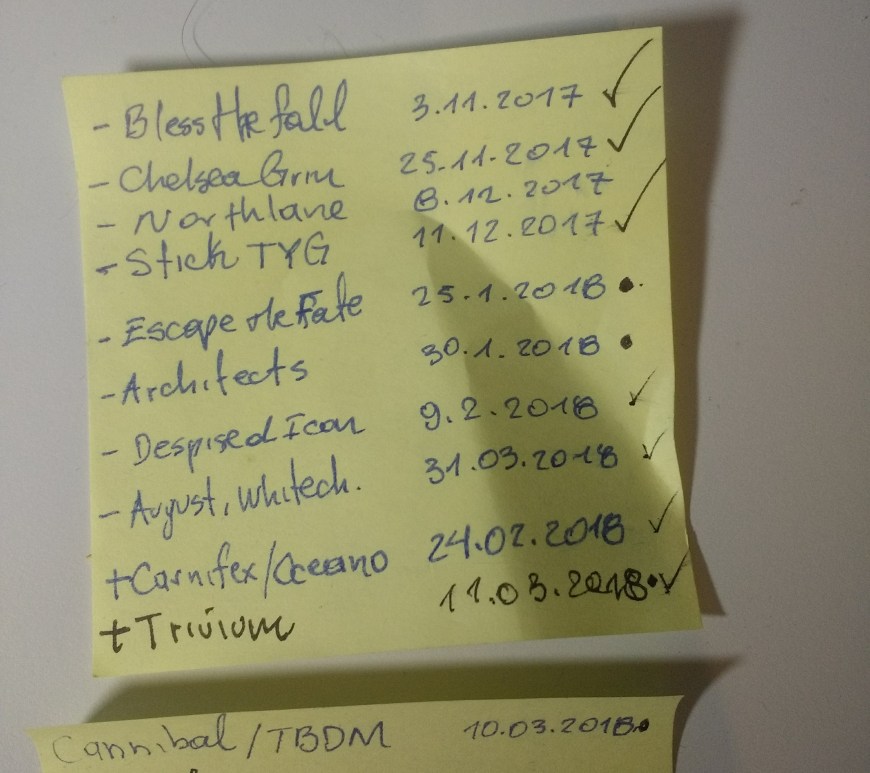 - Blessthefall 3.11.2017 ✓
- Chelsea Grin 25.11.2017 ✓
- Northlane 8.12.2017
- Stick TYG 11.12.2017 ✓
- Escape the Fate 25.1.2018 •
- Architects 30.1.2018 •
- Despised Icon 9.2.2018 ✓
- August, Whitech. 31.03.2018 ✓
+ Carnifex/Oceano 24.02.2018 ✓
+ Trivium 11.03.2018 • ✓
Cannibal/TBDM 10.03.2018 •